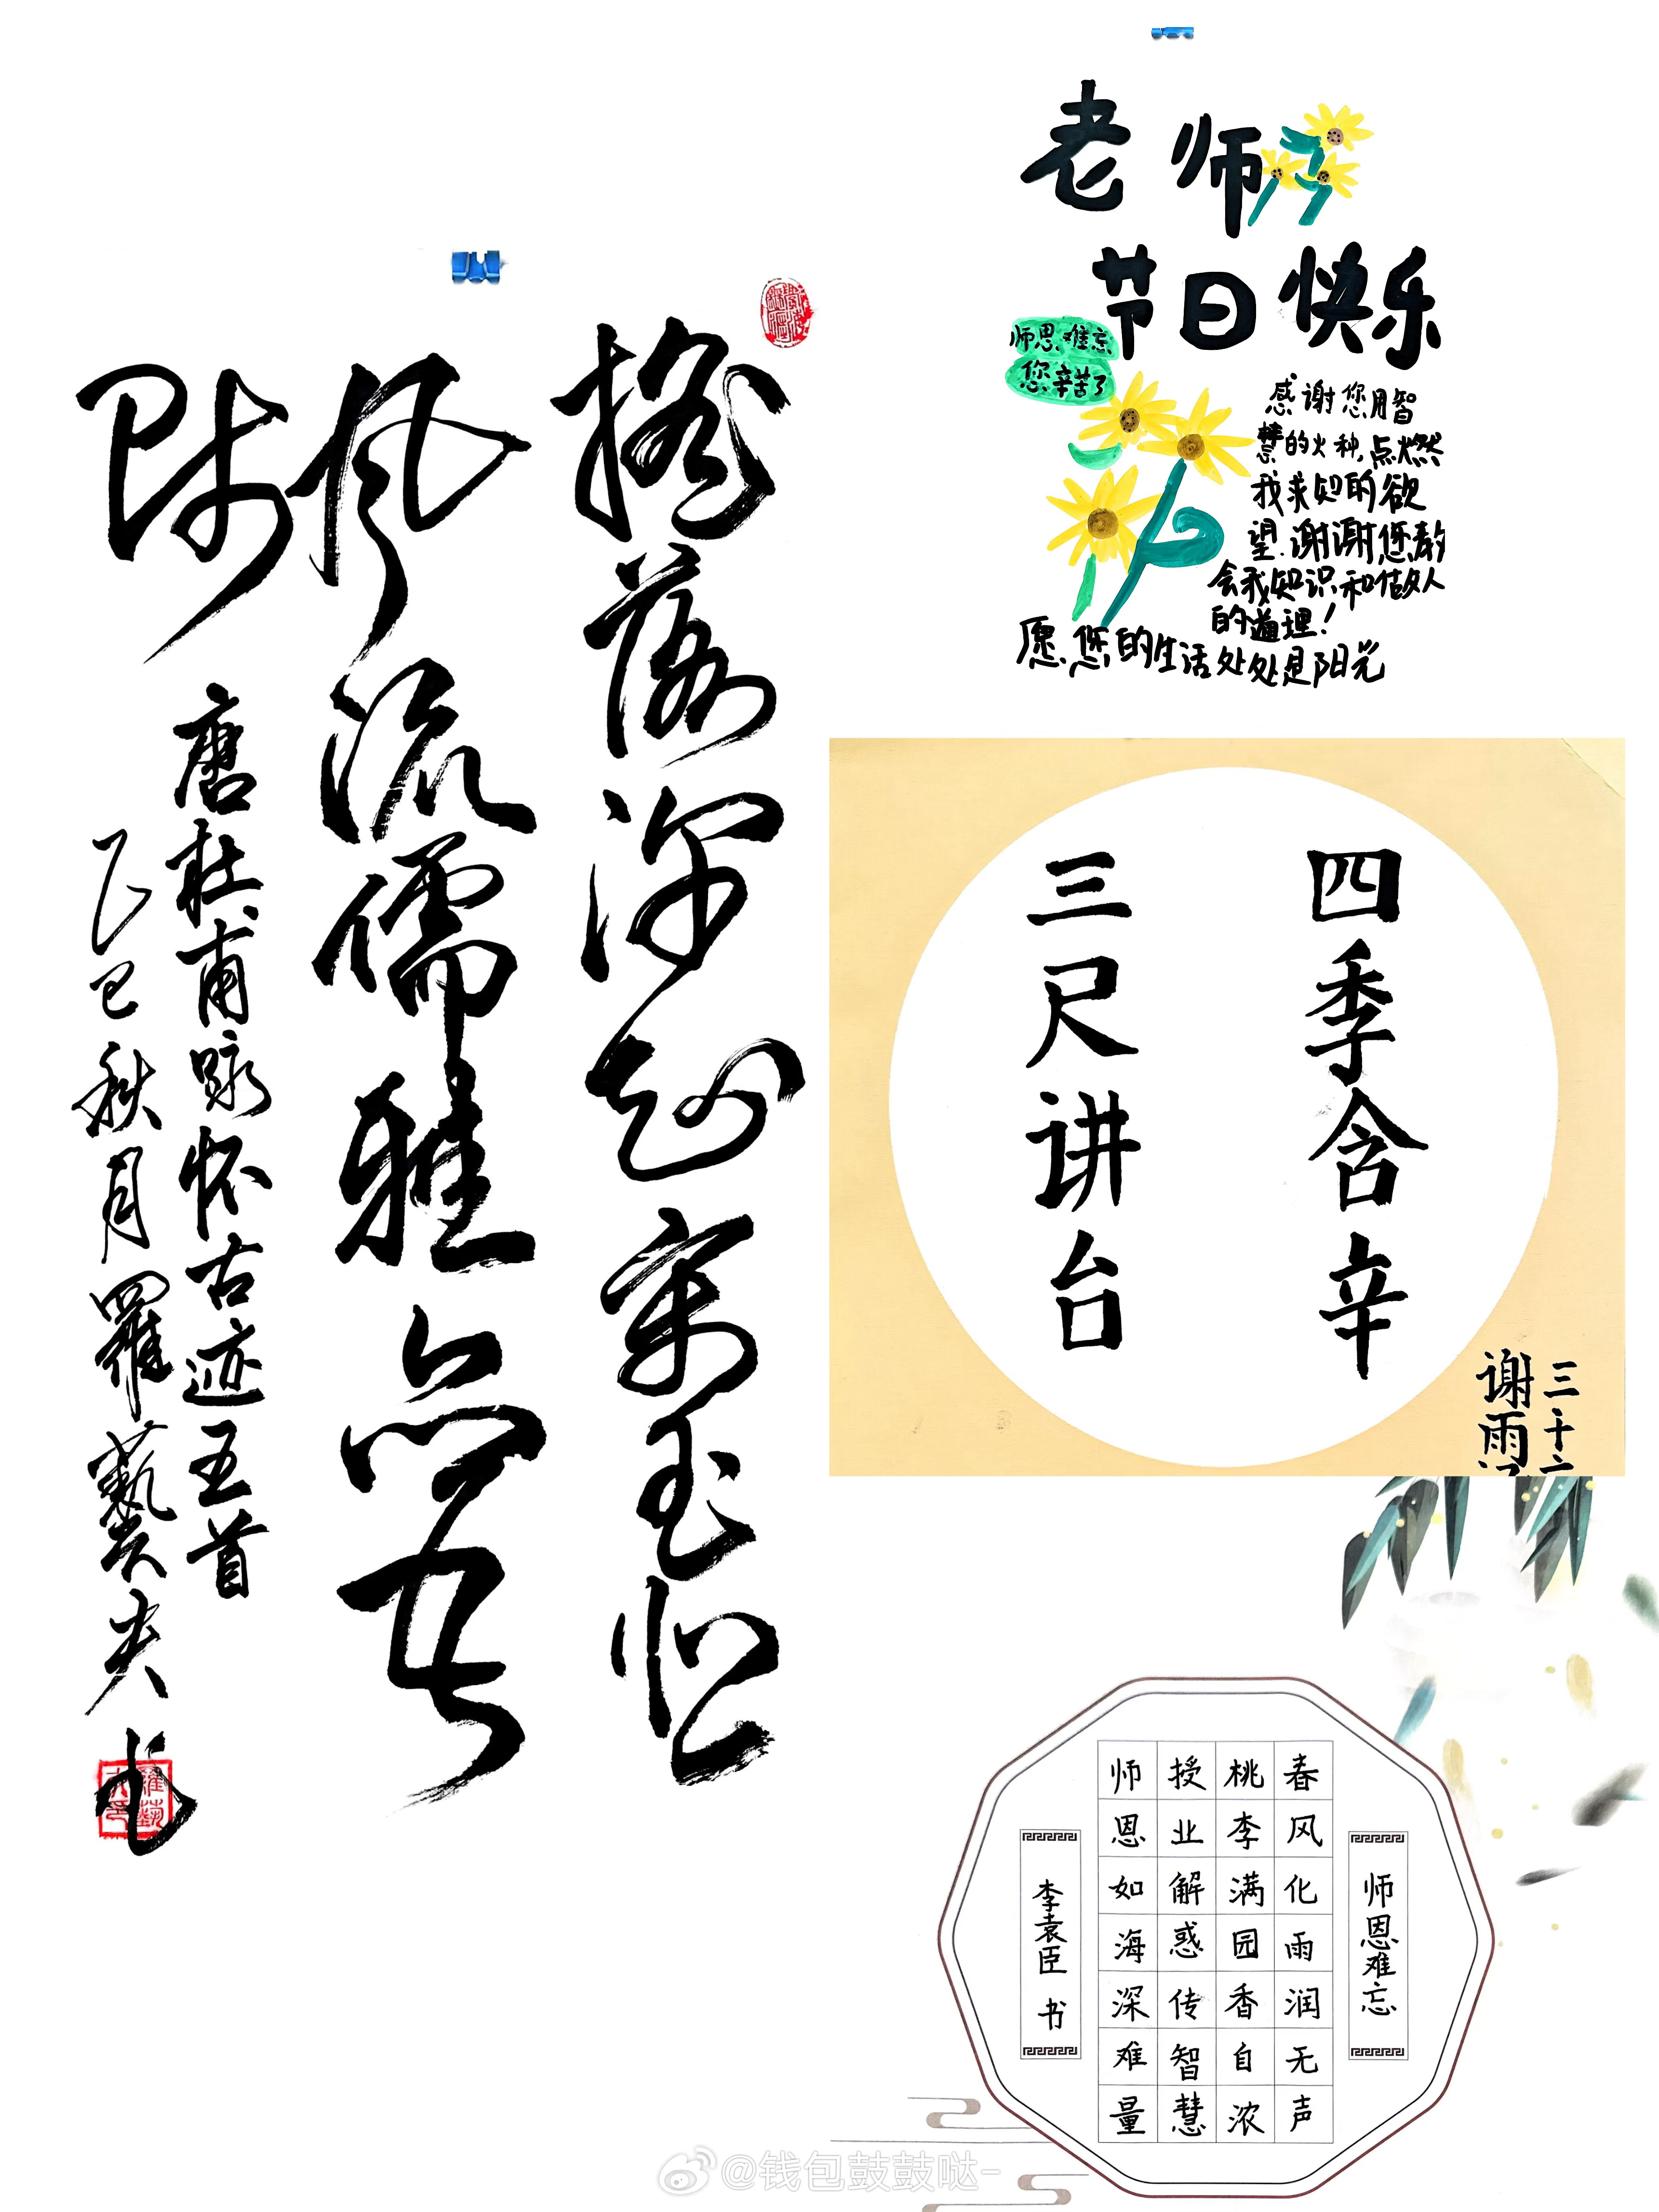 摇落深知宋玉悲
风流儒雅亦吾
师
唐杜甫咏怀古迹五首
乙巳秋月羅藝夫书
老师
节日快乐
师恩难忘
您辛苦了
感谢您用智
慧的火种,点燃
我求知的欲
望.谢谢,您教
会我知识和做人
的道理!
愿您的生活处处是阳光
四季含辛
三尺讲台
三十
谢雨
师恩难忘
春风化雨润无声
桃李满园香自浓
授业解惑传智慧
师恩如海深难量
李袁臣 书
@钱包鼓鼓哒-